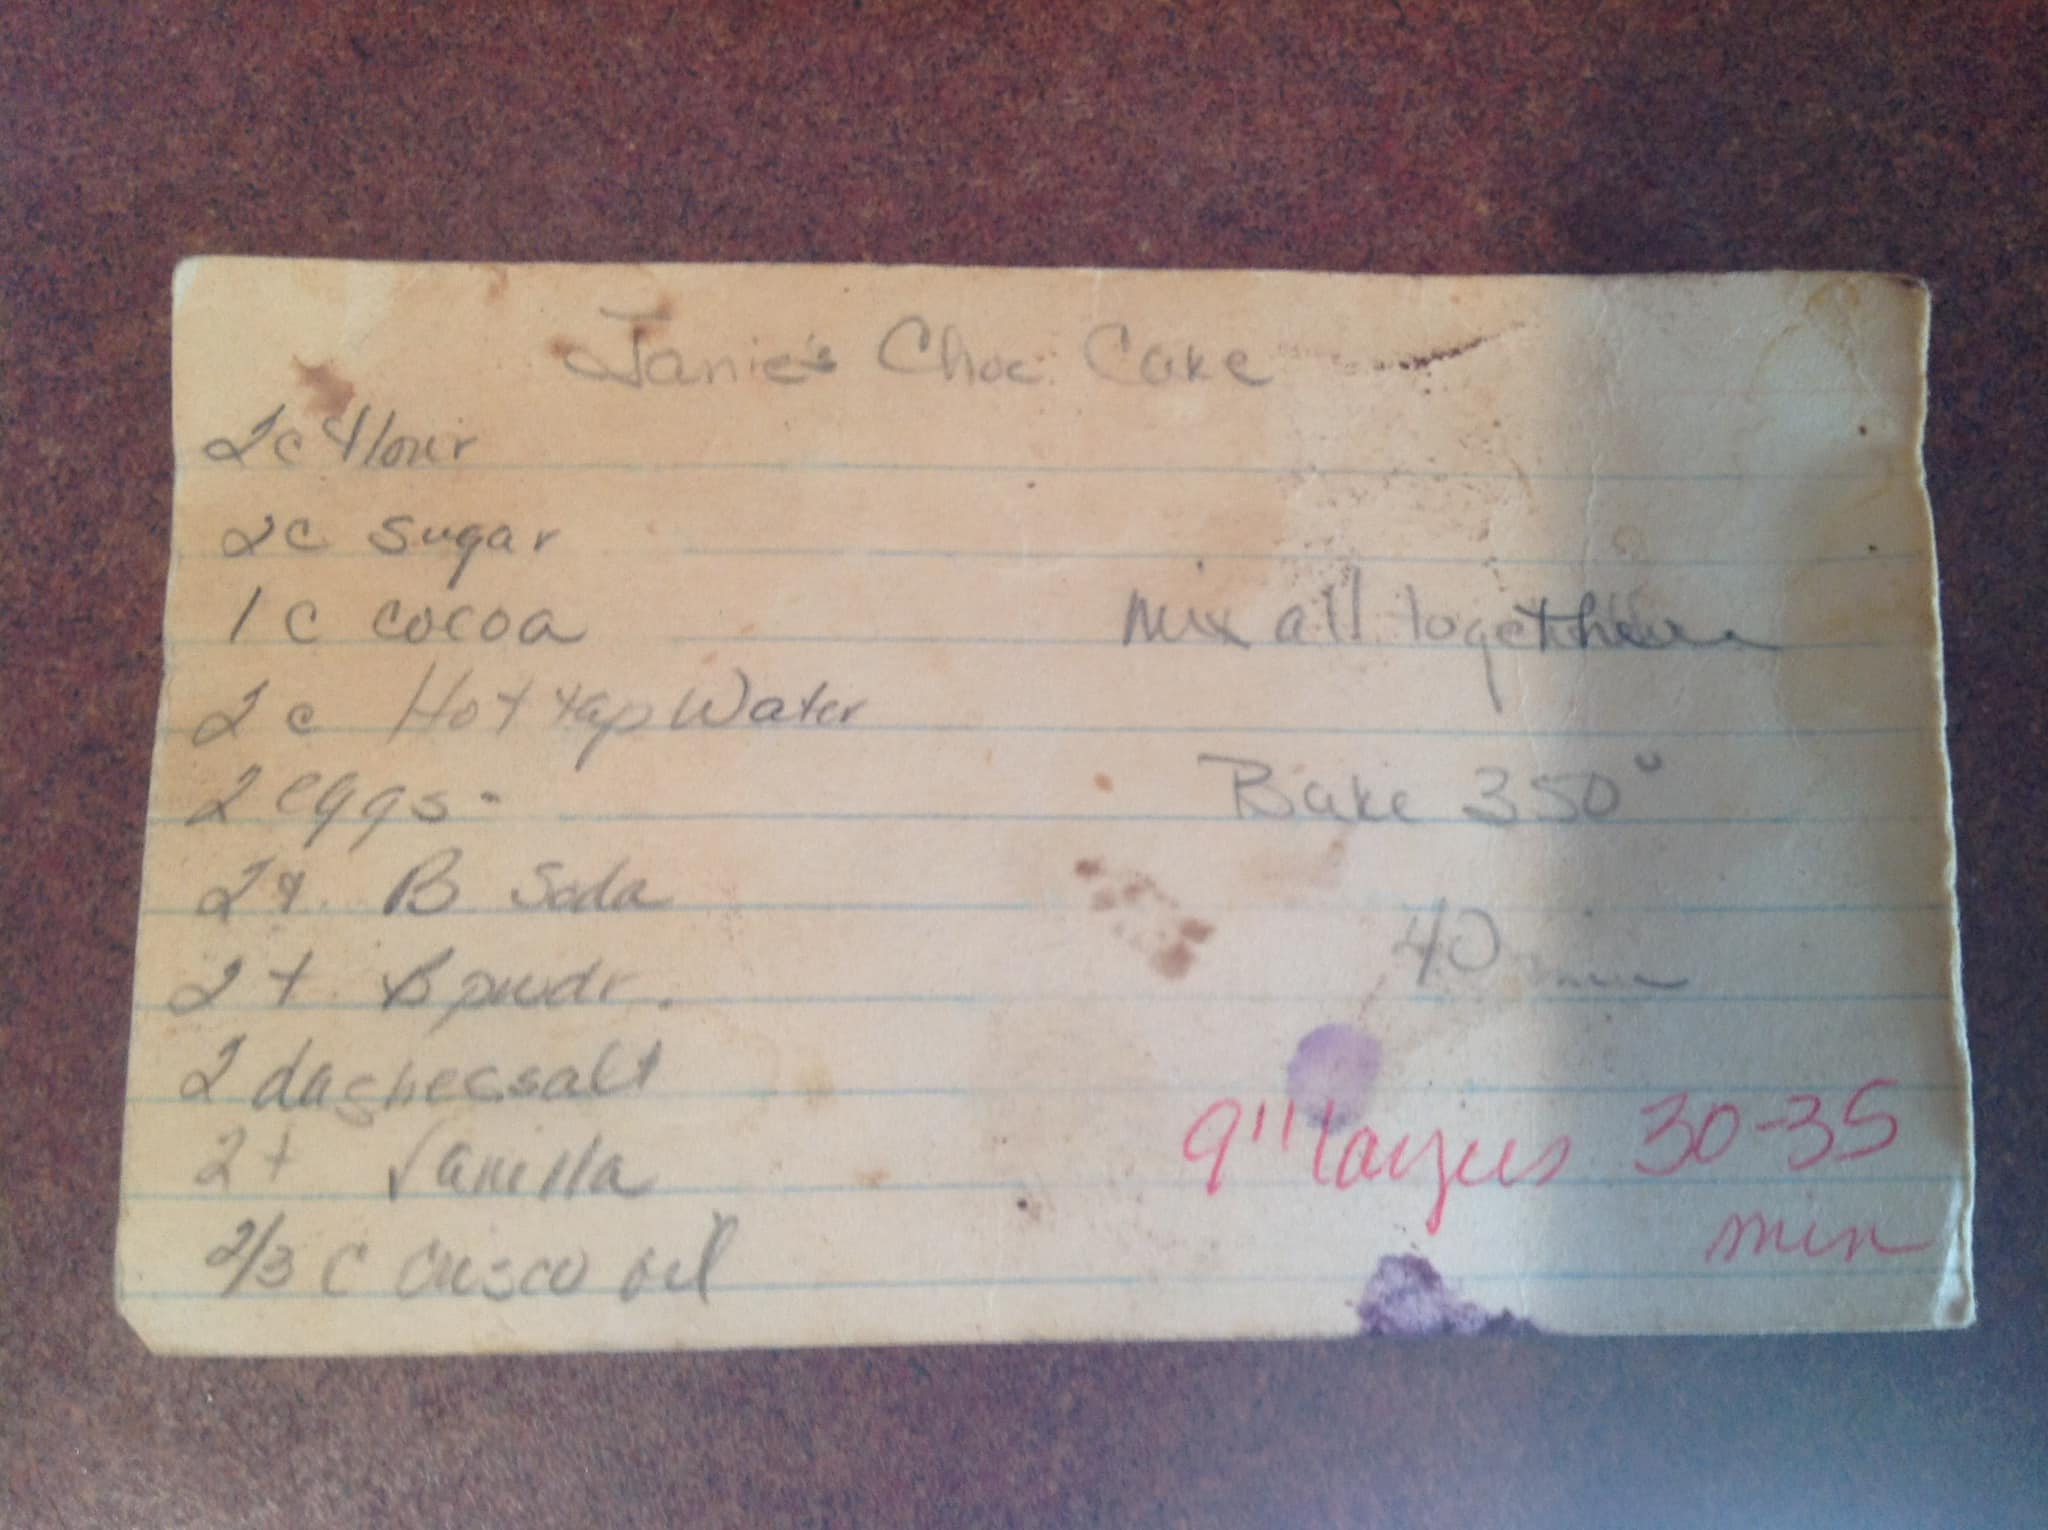 Janie's Choc Cake
2c flour
2c sugar
1 c cocoa
2 c Hot tap Water
2 eggs
2t. B Soda
2 t B powdr.
2 dashes salt
2 t Vanilla
2/3 C Crisco oil
Mix all together
Bake 350°
40 min
9" layers 30-35
min